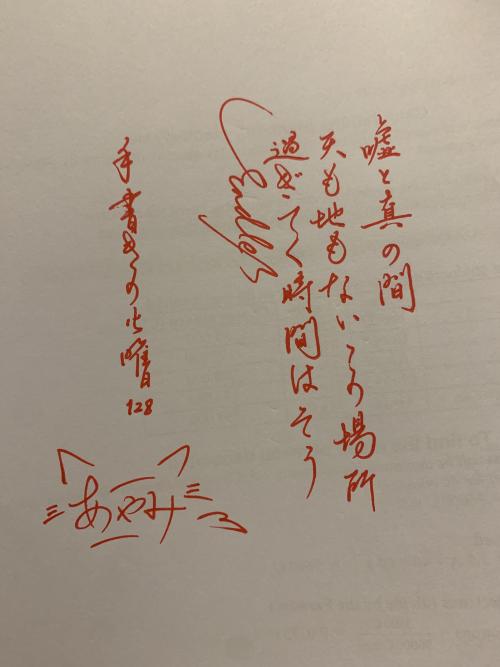 嘘と真の間
天も地もないこの場所
過ぎてく時間はそう
Endless
手書きの火曜
128
あやみ